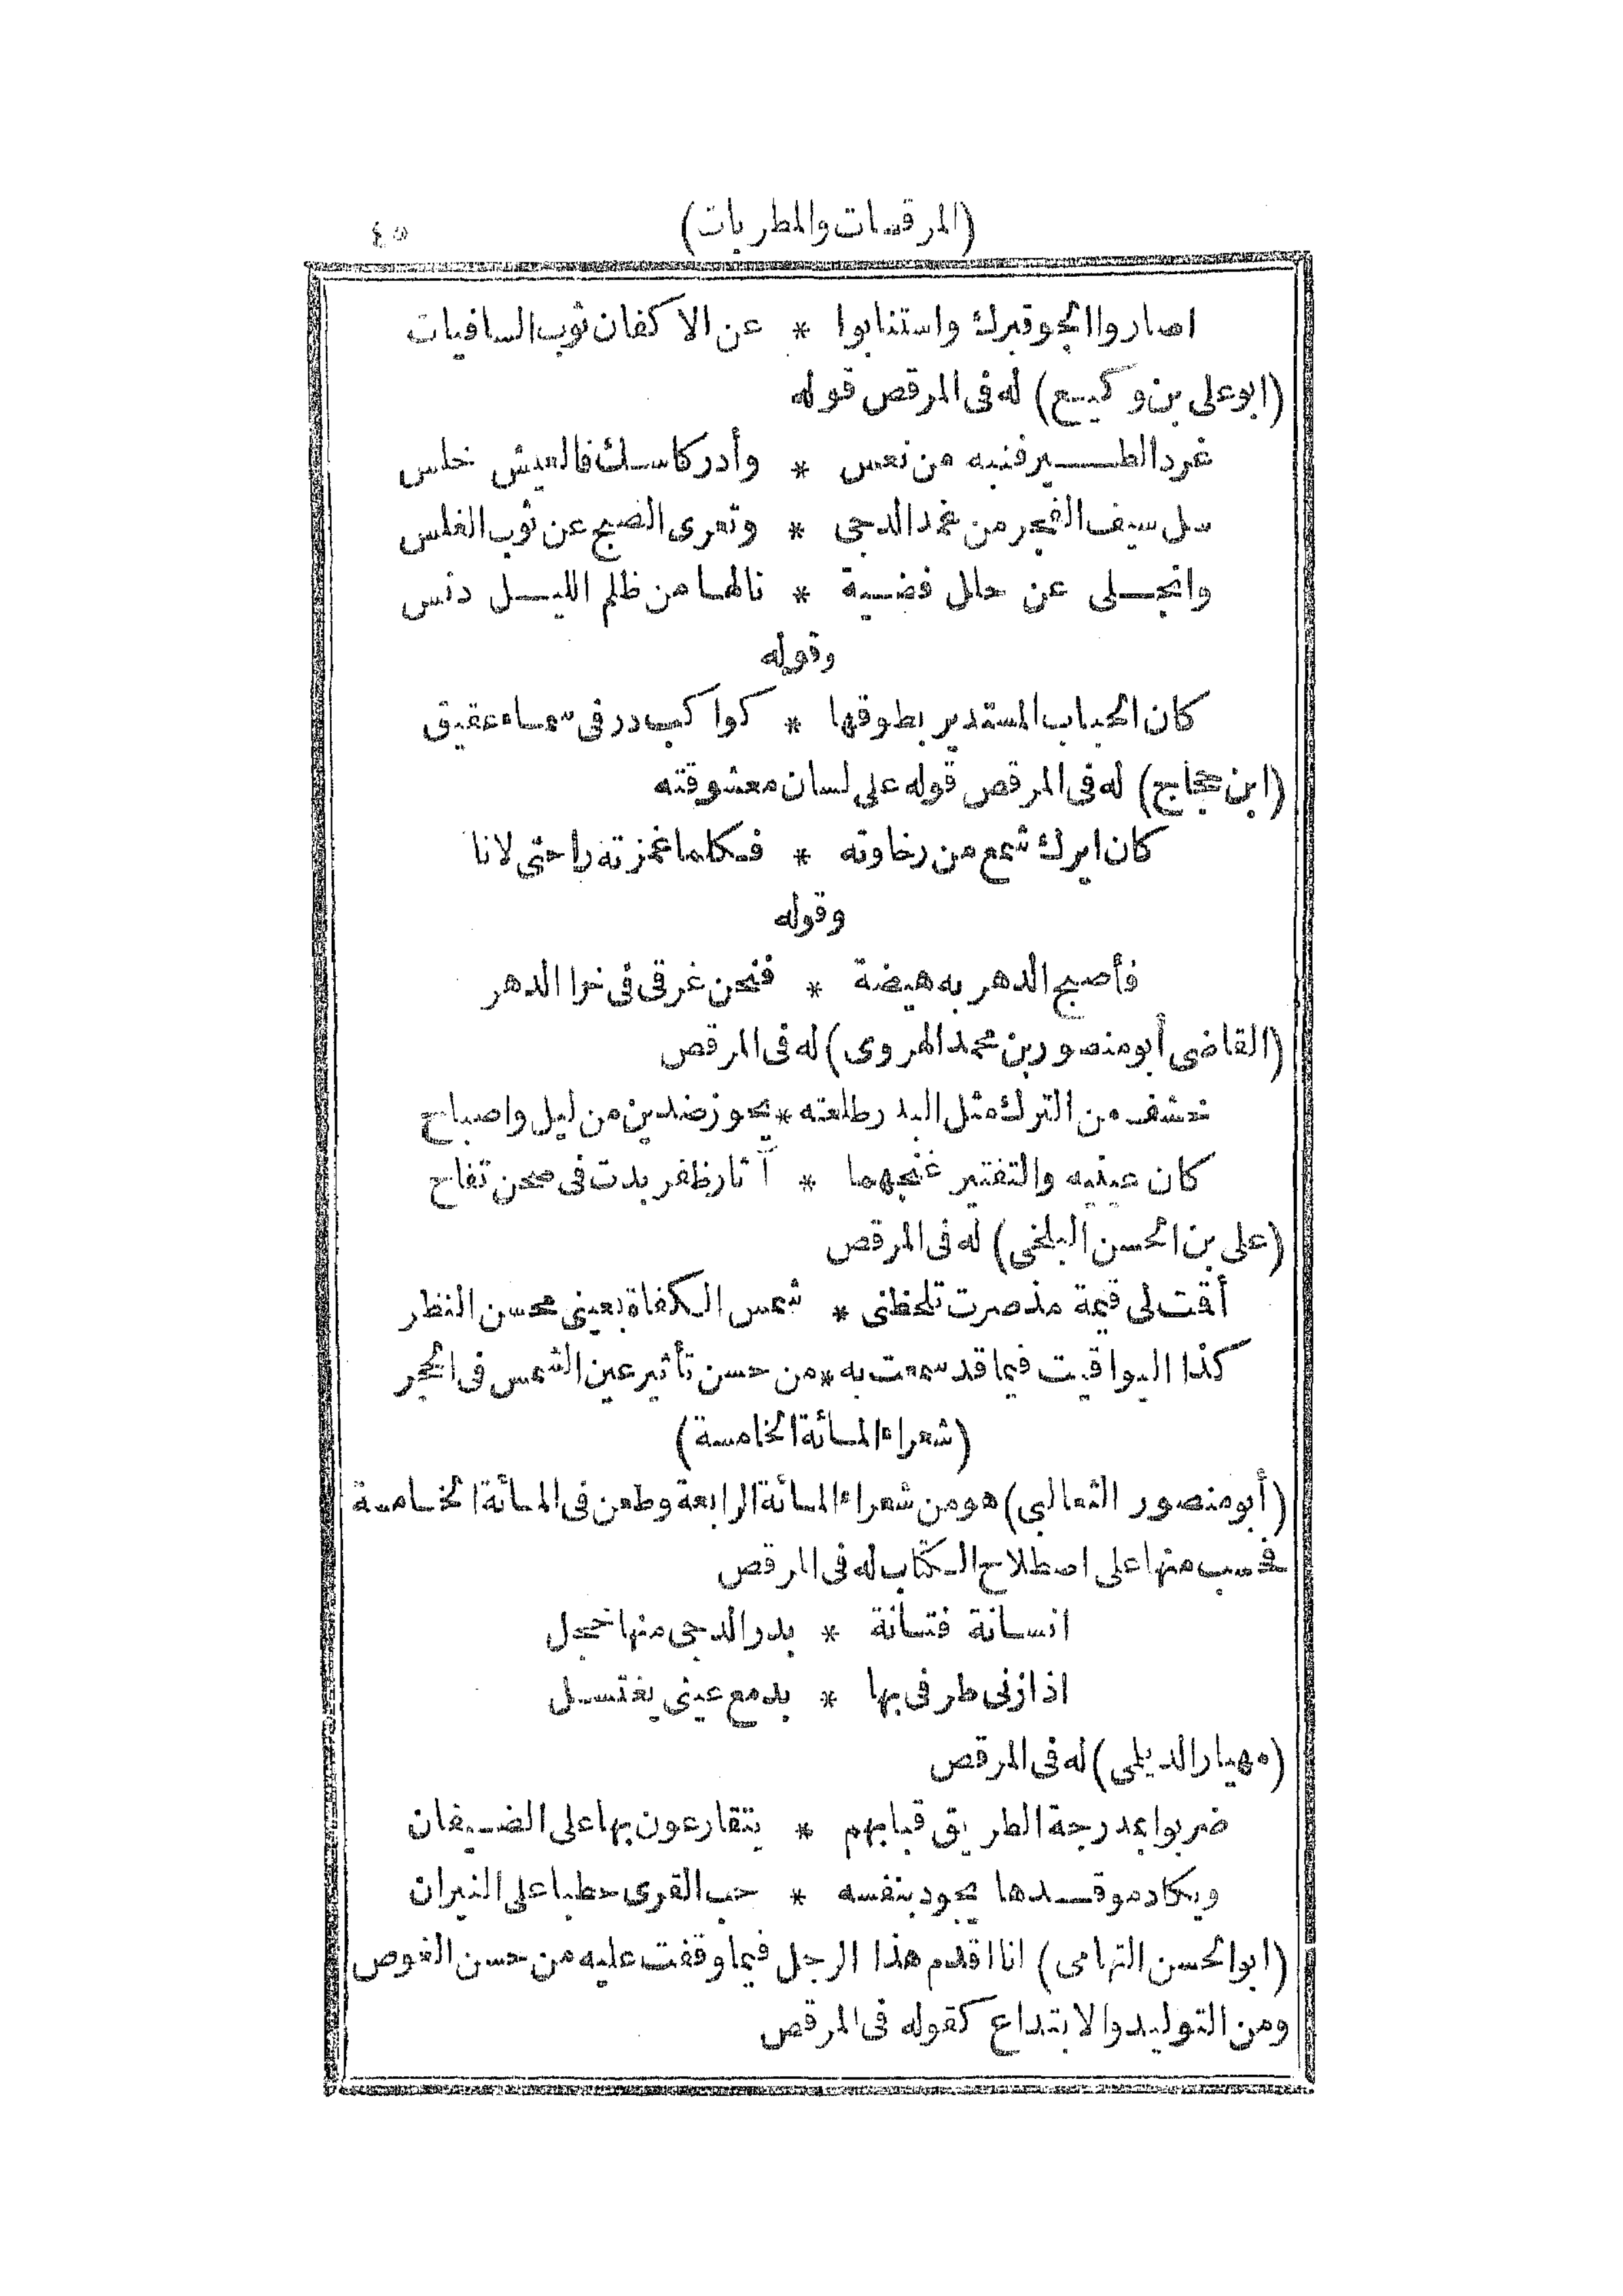 (المرقصات والمطربات) ٤٥
اصاروا الجو قبرك واستنابوا * عن الاكفان ثوب السافيات
(ابو على بن وكيع) له فى المرقص قوله
غرد الطير فنبه من نعس * وأدر كاسك فالعيش خلس
سل سيف الفجر من غمد الدجى * وتعرى الصبح عن ثوب الغلس
وانجلى عن حلل فضية * نالها من ظلم الليل دنس
وقوله
كان الحباب المستدير بطوقها * كواكب در فى سماء عقيق
(ابن حجاج) له فى المرقص قوله على لسان معشوقته
كان ايرك شمع من رخاوته * فكلما غمزته راحتى لانا
وقوله
فأصبح الدهر به هيضة * فنحن غرقى فى خرا الدهر
(القاضى أبو منصور بن محمد الهروى) له فى المرقص
خشف من الترك مثل البدر طلعته * يحوز ضدين من ليل واصباح
كان عينيه والتفتير غنجهما * آثار ظفر بدت فى صحن تفاح
(على بن الحسن البلخى) له فى المرقص
أقت لى قيمة مذ صرت تلحظنى * شمس الكفاة بعينى محسن النظر
كذا اليواقيت فيما قد سمعت به * من حسن تأثير عين الشمس فى الحجر
(شعراء المائة الخامسة)
(أبو منصور الثعالبي) هو من شعراء المائة الرابعة وطعن فى المائة الخامسة
فحسب منها على اصطلاح الكتاب له فى المرقص
انسانة فتانة * بدر الدجى منها خجل
اذا زنى طرفى بها * بدمع عينى يغتسل
(مهيار الديلمى) له فى المرقص
ضربوا بمدرجة الطريق قبابهم * يتقارعون بها على الضيفان
ويكاد موقدها يجود بنفسه * حب القرى حطبا على النيران
(ابو الحسن التهامى) انا اقدم هذا الرجل فيما وقفت عليه من حسن الغوص
ومن التوليد والابتداع كقوله فى المرقص